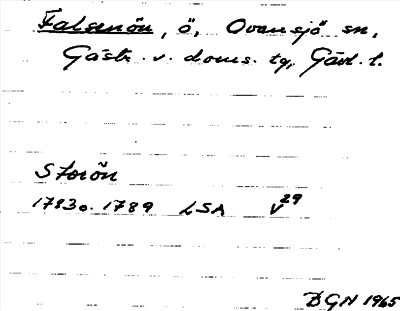 Falsenön, ö, Ovansjö sn,
Gästr. v. doms. tg, Gävl. l.
Storön
1783 o. 1789 LSA V29
BGN 1965